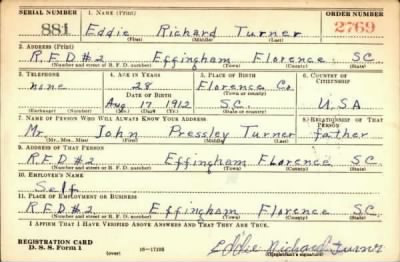 SERIAL NUMBER 1. NAME (Print) ORDER NUMBER
881 Eddie Richard Turner 2769
(First) (Middle) (Last)
2. ADDRESS (Print)
R.F.D #2 Effingham Florence SC
(Number and street or R. F. D. number) (Town) (County) (State)
3. TELEPHONE 4. AGE IN YEARS 5. PLACE OF BIRTH 6. COUNTRY OF CITIZENSHIP
none 28 Florence Co.
DATE OF BIRTH (Town or county)
Aug 17 1912 S.C. USA
(Exchange) (Number) (Mo.) (Day) (Yr.) (State or country)
7. NAME OF PERSON WHO WILL ALWAYS KNOW YOUR ADDRESS 8. RELATIONSHIP OF THAT PERSON
Mr. John Pressley Turner father
(Mr., Mrs., Miss) (First) (Middle) (Last)
9. ADDRESS OF THAT PERSON
R.F.D #2 Effingham Florence SC
(Number and street or R. F. D. number) (Town) (County) (State)
10. EMPLOYER'S NAME
Self
11. PLACE OF EMPLOYMENT OR BUSINESS
R.F.D #2 Effingham Florence SC.
(Number and street or R. F. D. number) (Town) (County) (State)
I AFFIRM THAT I HAVE VERIFIED ABOVE ANSWERS AND THAT THEY ARE TRUE.
REGISTRATION CARD
D. S. S. Form 1 (over) Eddie Richard Turner
(Registrant's signature)